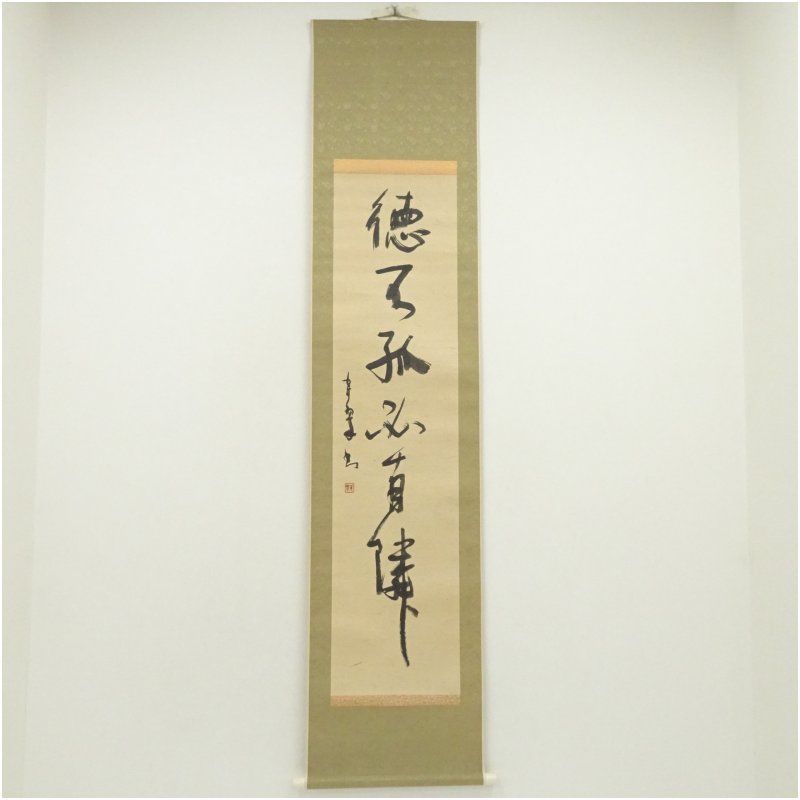 徳不孤必有隣